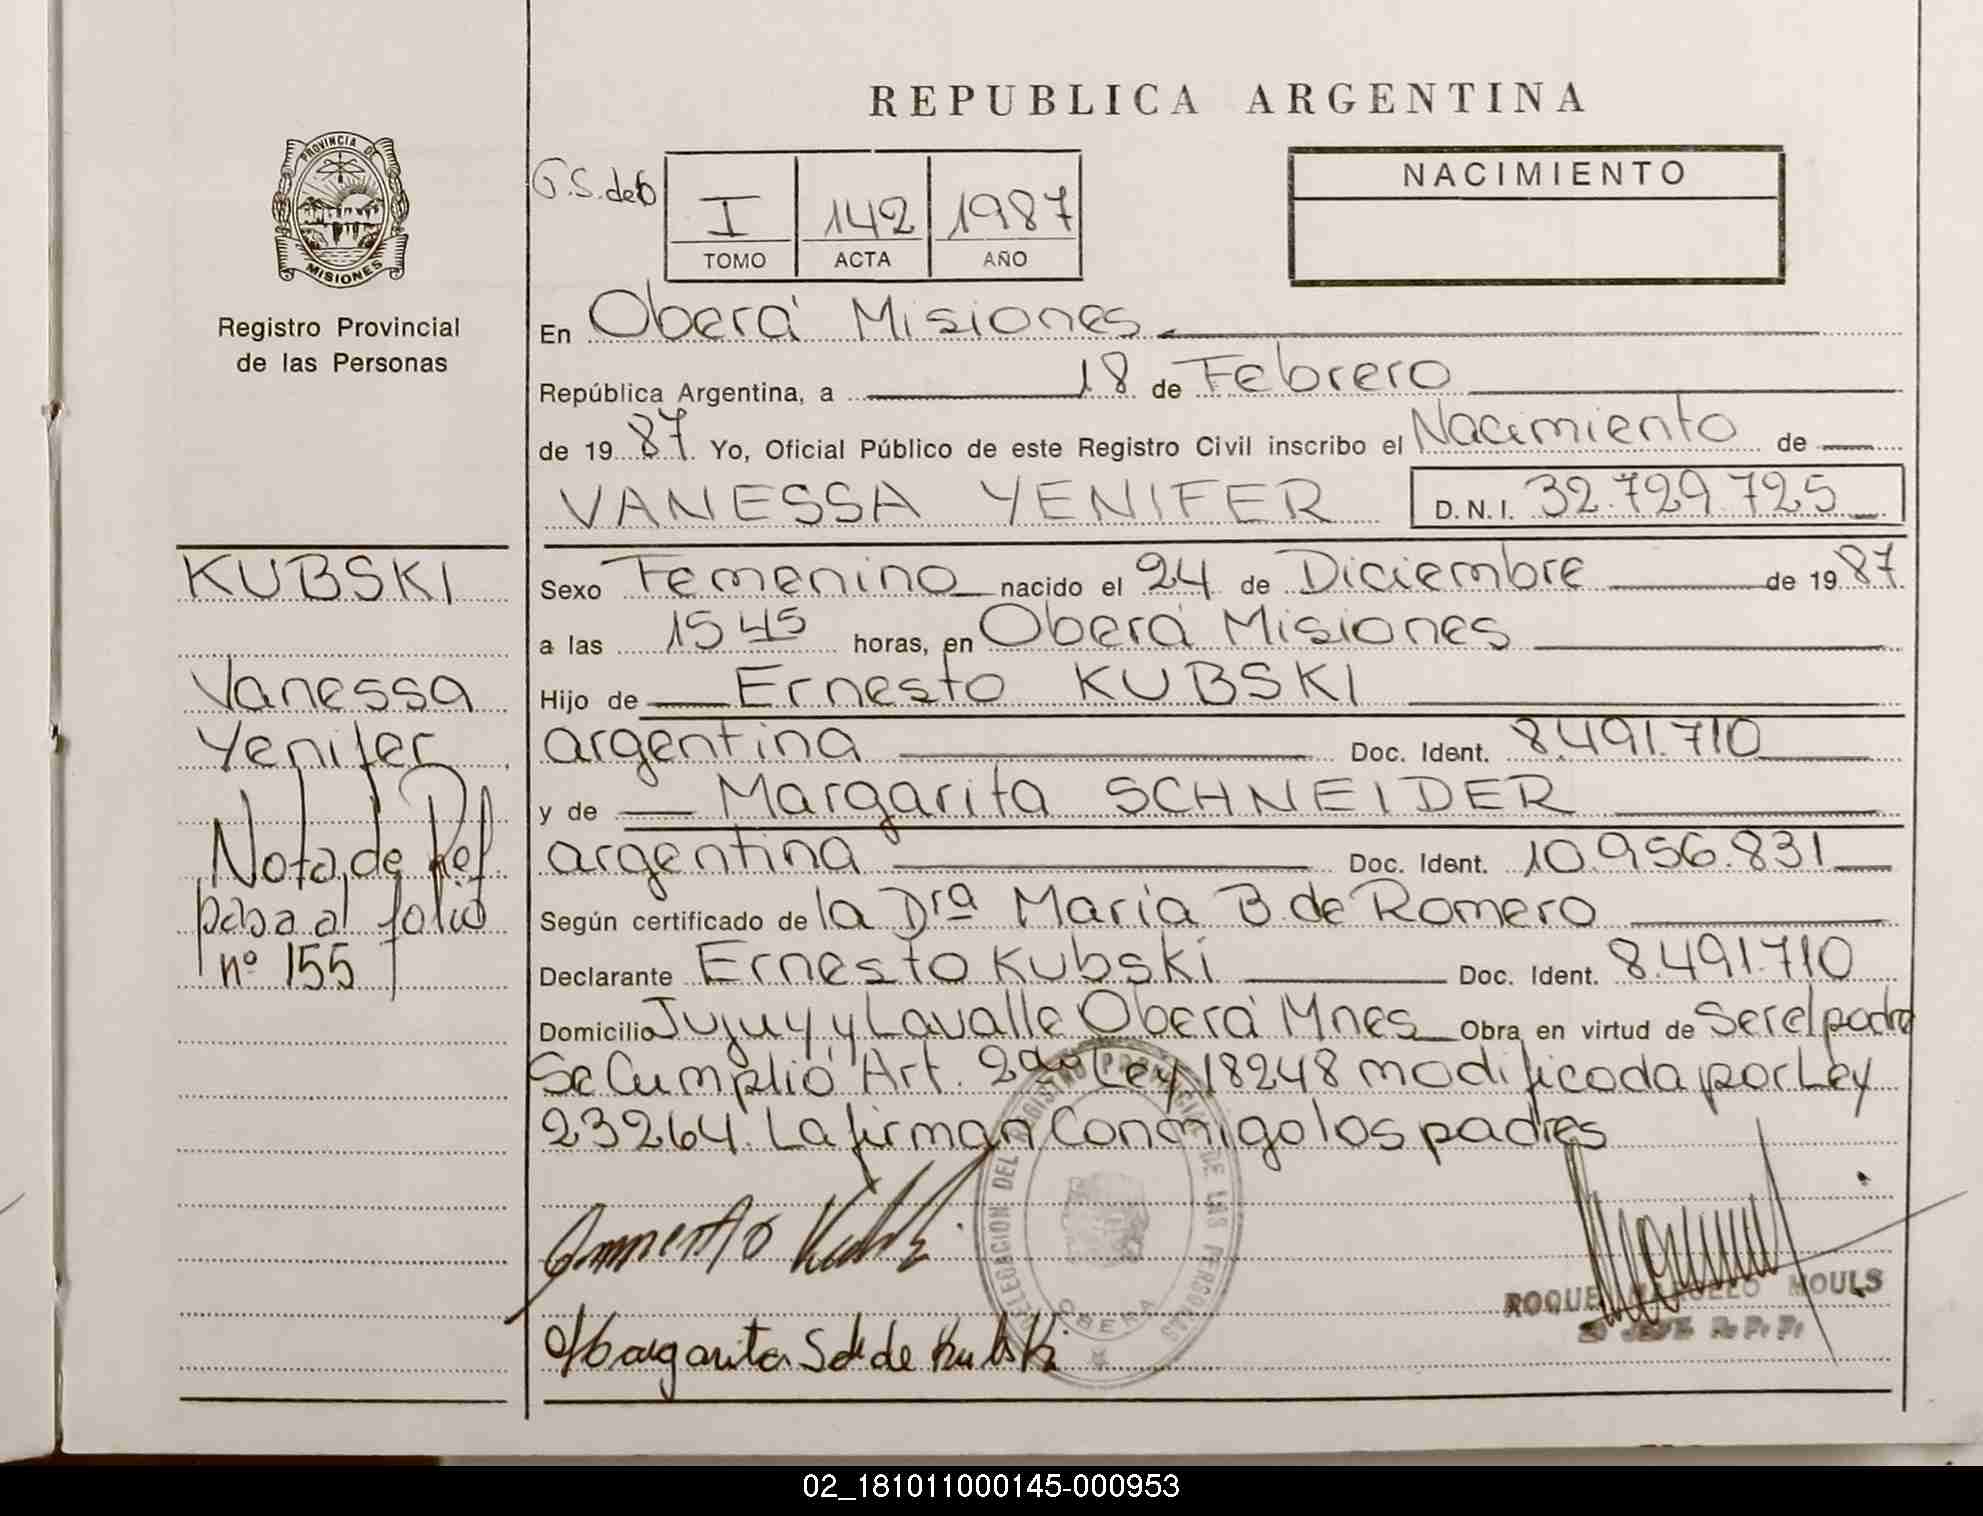 REPUBLICA ARGENTINA
PROVINCIA DE
MISIONES
Registro Provincial
de las Personas
G.S.deb
I 142 1987
TOMO ACTA AÑO
NACIMIENTO
En Oberá Misiones
República Argentina, a 18 de Febrero
de 19 87 Yo, Oficial Público de este Registro Civil inscribo el Nacimiento de
VANESSA YENIFER D.N.I. 32.729.725
KUBSKI
Vanessa
Yenifer
Nota de Ref
pasa al folio
nº 155
Sexo Femenino nacido el 24 de Diciembre de 19 87
a las 15 45 horas, en Oberá Misiones
Hijo de Ernesto KUBSKI
argentina Doc. Ident. 8.491.710
y de Margarita SCHNEIDER
argentina Doc. Ident. 10.956.831
Según certificado de la Dra María B. de Romero
Declarante Ernesto Kubski Doc. Ident. 8.491.710
Domicilio Jujuy y Lavalle Oberá Mnes Obra en virtud de Ser el padre
Se Cumplió Art. 2do Ley 18248 modificada por Ley
23264. La firman Conmigo los padres
DELEGACION DEL REGISTRO PROVINCIAL DE LAS PERSONAS
OBERA
Margarita Sch de Kubski
ROQUE MARCELO MOULS
JEFE R. P. P.
02_181011000145-000953